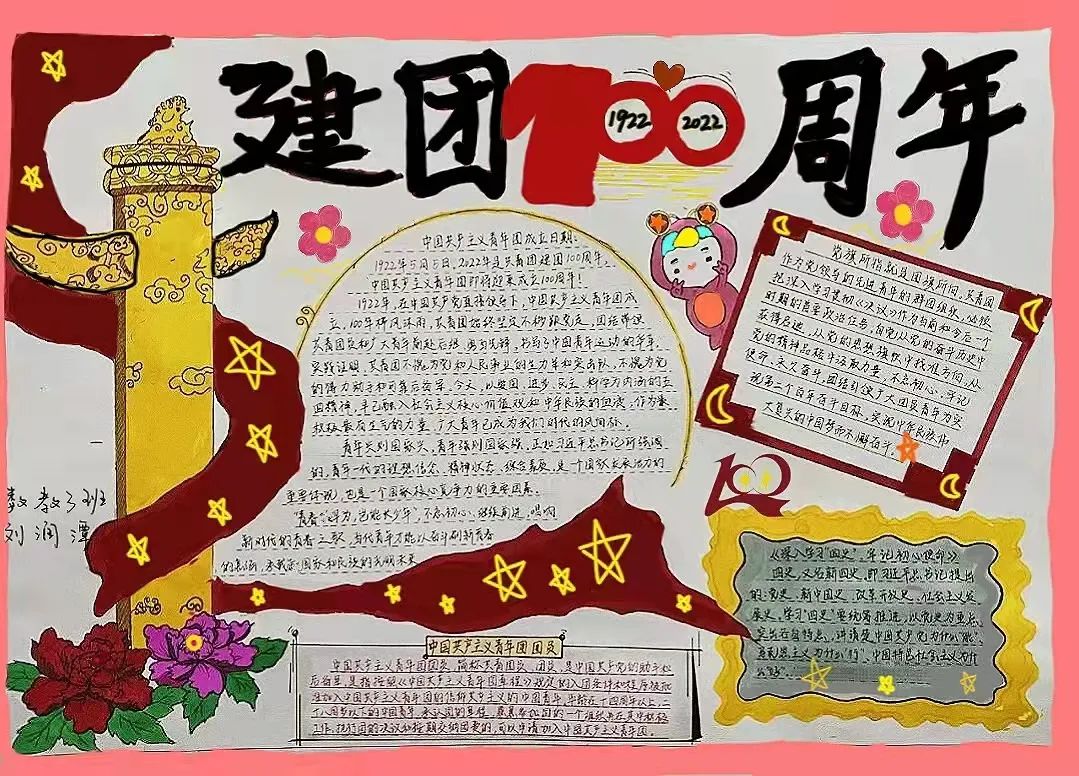 建团100周年
1922 2022
中国共产主义青年团成立日期:
1922年5月5日,2022年是共青团建团100周年,
中国共产主义青年团即将迎来成立100周年!
1922年,在中国共产党直接领导下,中国共产主义青年团成
立,100年栉风沐雨,共青团始终坚定不移跟党走,团结带领
共青团员和广大青年前赴后继、勇当先锋,书写了中国青年运动的华章,
实践证明,共青团不愧为党和人民事业的生力军和突击队,不愧为党
的得力助手和可靠后备军,今天,以爱国、进步、民主、科学为内涵的五
四精神,早已融入社会主义核心价值观和中华民族的血液,作为最
积极最有生气的力量,广大青年已成为我们时代的风向标。
青年兴则国家兴,青年强则国家强,正如习近平总书记所强调
的,青年一代的理想信念、精神状态、综合素质,是一个国家发展活力的
重要体现,也是一个国家核心竞争力的重要因素。
新时代的青春之歌,当代青年方能以奋斗创新青春
党旗所指就是团旗所向,共青团
作为党领导的先进青年的群团组织,必须
把深入学习贯彻《决议》作为当前和今后一个
时期的首要政治任务,自觉从党的奋斗历史中
获得启迪,从党的思想旗帜中找准方向,从
党的精神品格中汲取力量,不忘初心、牢记
使命、永久奋斗,团结引领广大团员青年为实
现第二个百年奋斗目标、实现中华民族伟
大复兴的中国梦而不懈奋斗。
100
《深入学习“四史”,牢记初心使命》
四史,又称新四史,即习近平总书记提出
的:党史、新中国史、改革开放史、社会主义发
展史,学习“四史”要统筹推进,以党史为重点,
突出各自特点,讲清楚中国共产党为什么“能”、
马克思主义为什么“行”、中国特色社会主义为什
么“好”。
刘润潭
中国共产主义青年团团员
中国共产主义青年团团员,简称共青团员、团员,是中国共产党的助手和
后备军,是指按照《中国共产主义青年团章程》规定的入团条件和程序被批
准加入中国共产主义青年团的信仰共产主义的中国青年,年龄在十四周岁以上,二
十八周岁以下的中国青年,承认团的章程,愿意参加团的一个组织并在其中积极
工作、执行团的决议和按期交纳团费的,可以申请加入中国共产主义青年团。